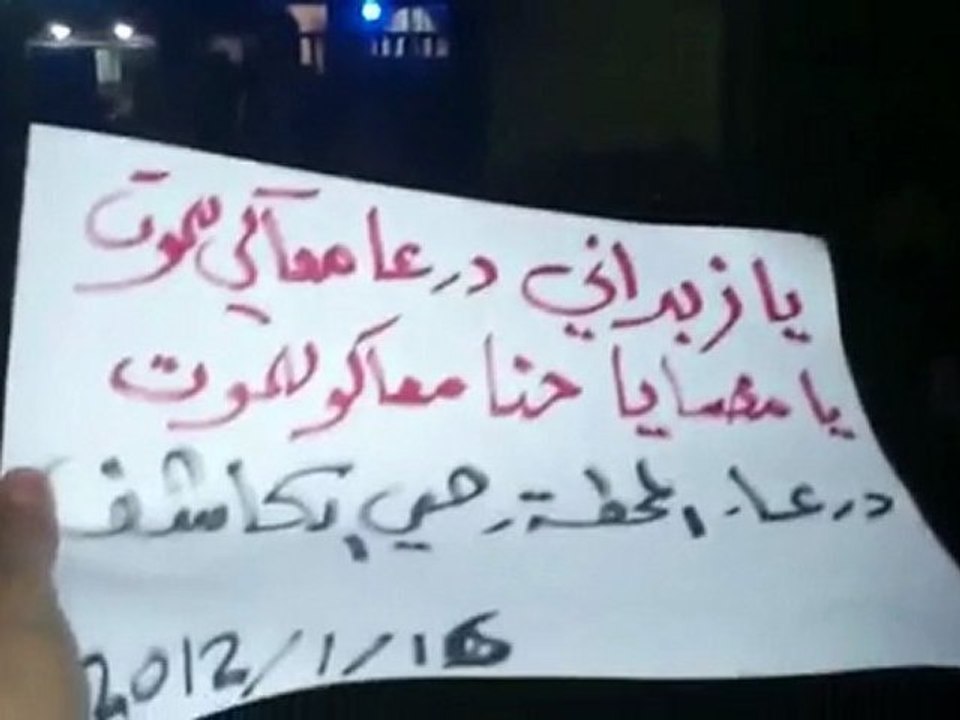 يا زبداني درعا معاكي للموت
يا مضايا حنا معاكو للموت
درعا - المحطة - حي الكاشف
2012/1/16